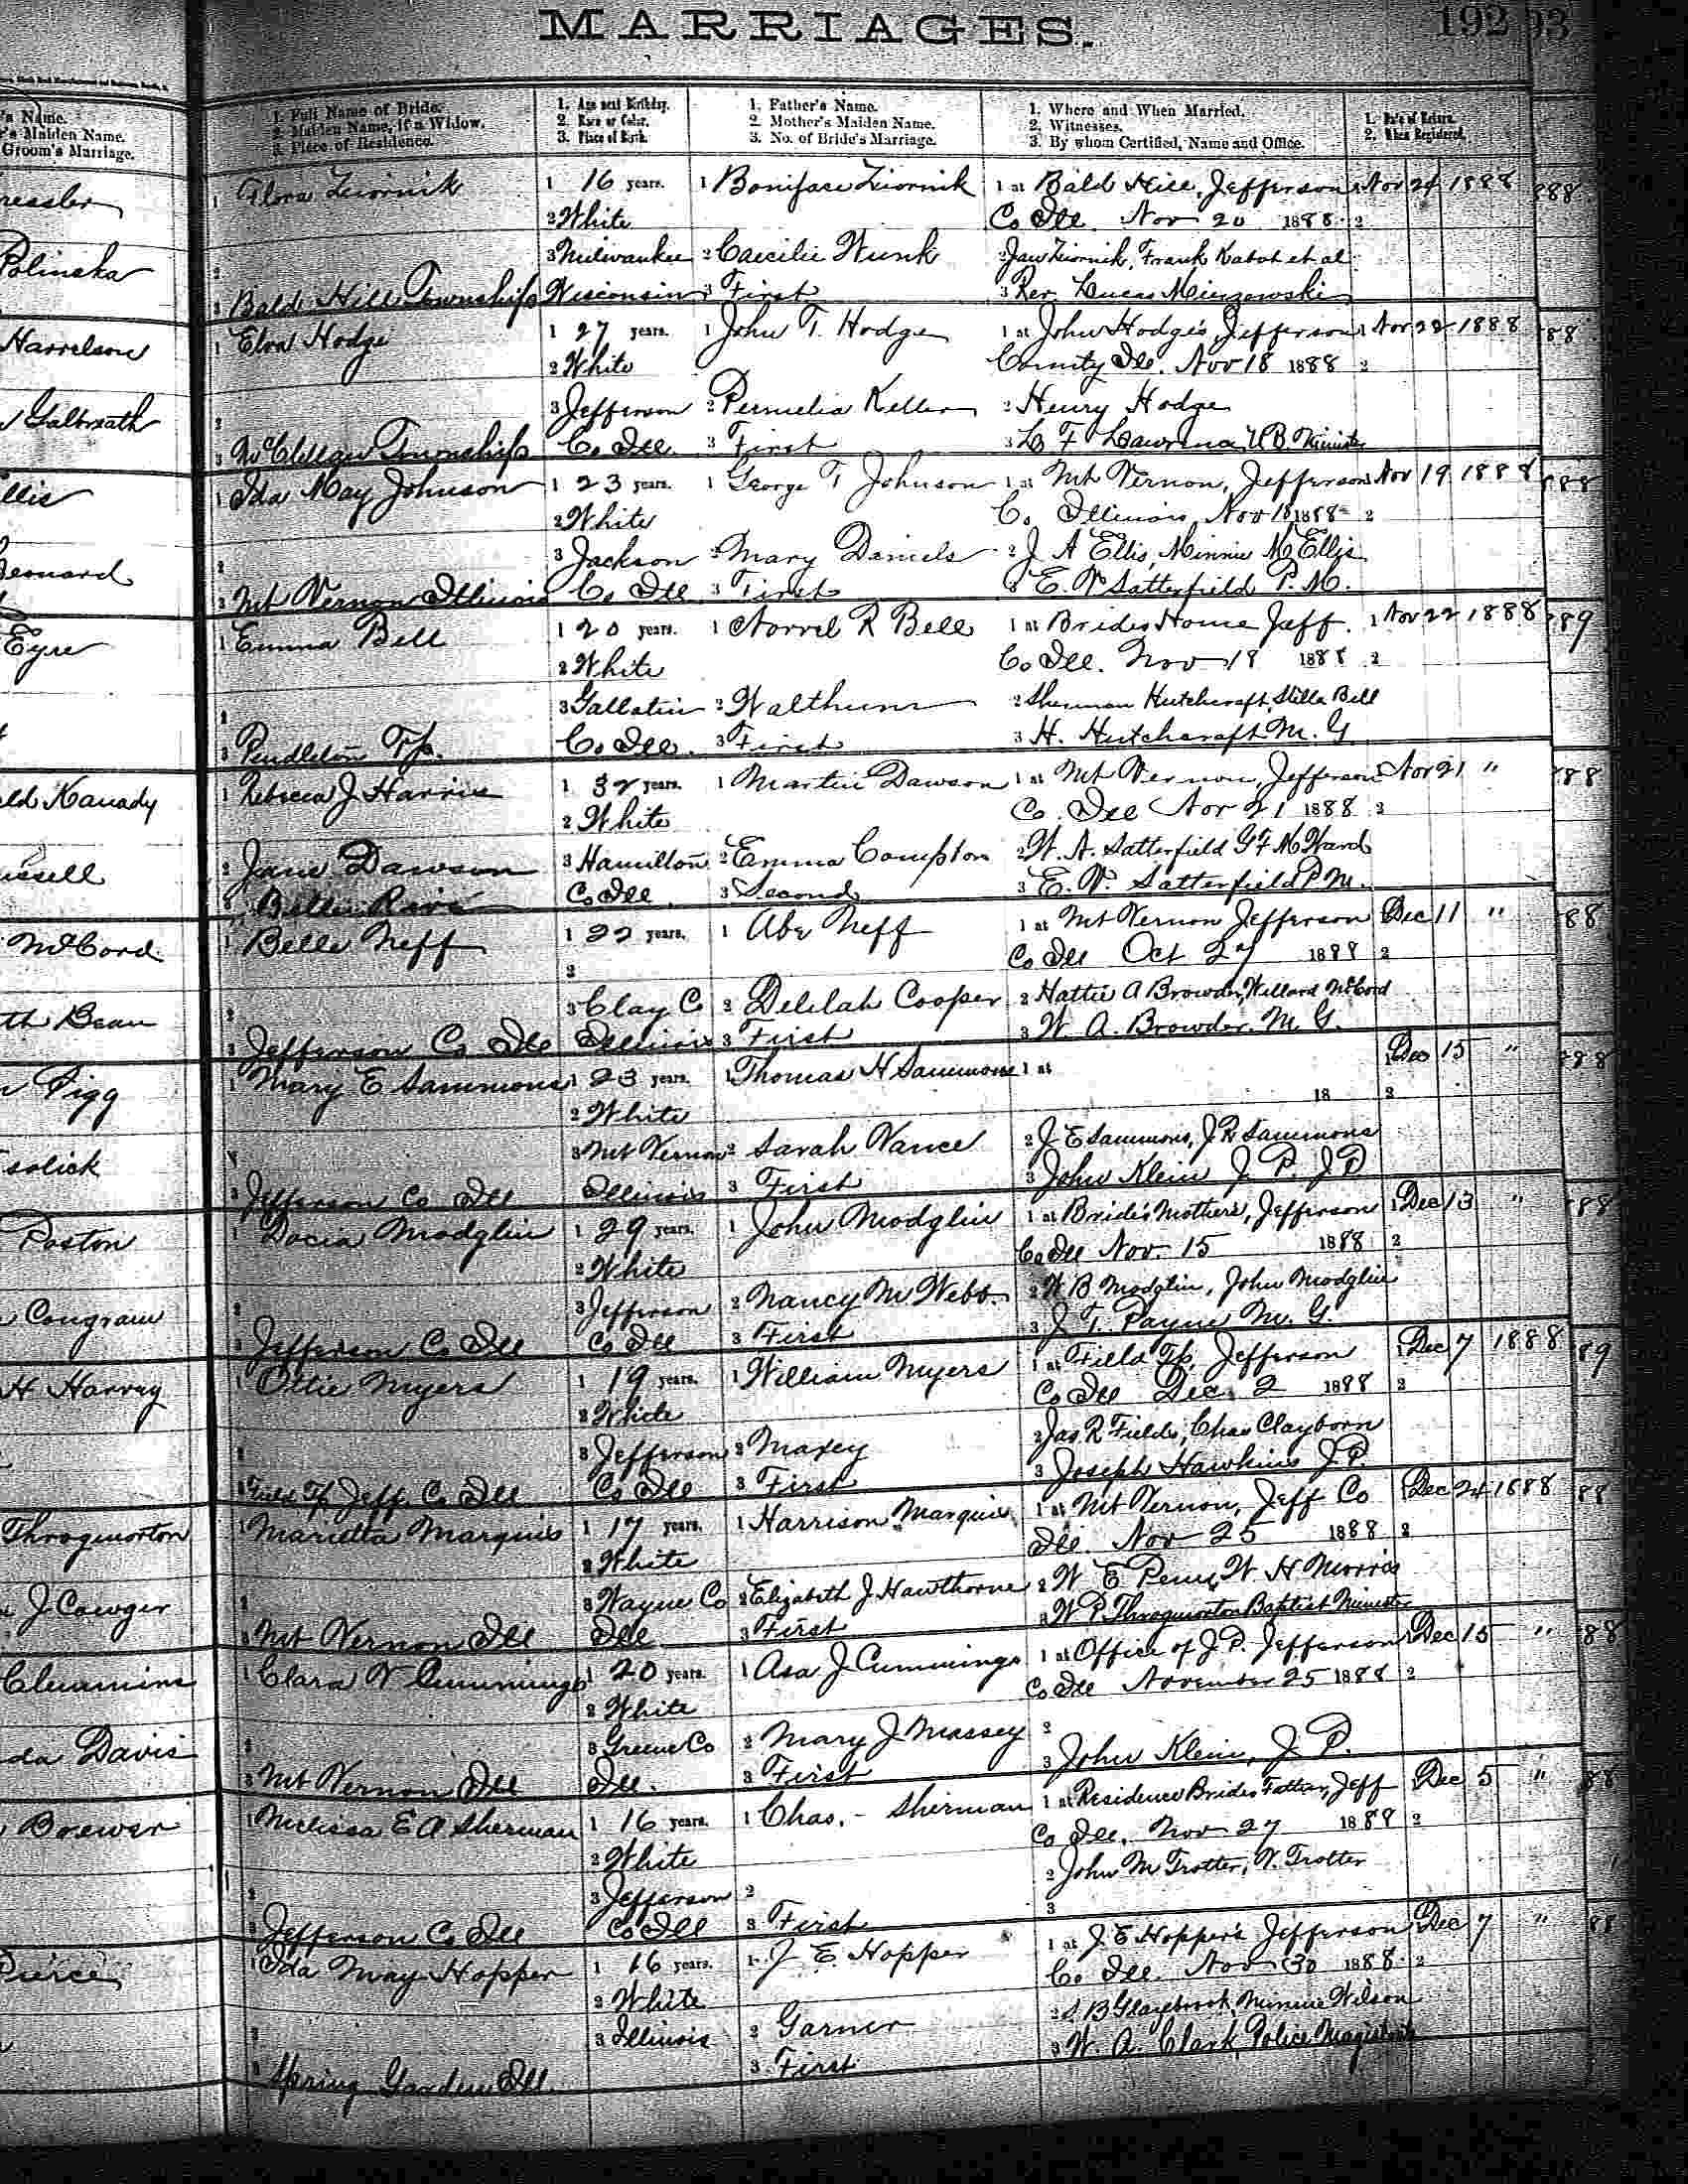 MARRIAGES.
192 93
's Name.
's Maiden Name.
Groom's Marriage.
1. Full Name of Bride.
2. Maiden Name, if a Widow.
3. Place of Residence.
1. Age next Birthday.
2. Race or Color.
3. Place of Birth.
1. Father's Name.
2. Mother's Maiden Name.
3. No. of Bride's Marriage.
1. Where and When Married.
2. Witnesses.
3. By whom Certified, Name and Office.
1. Date of Return.
2. When Registered.
ressler
1 Flora Ziornik 1 16 years. 1 Boniface Ziornik 1 at Bald Hill, Jefferson Nov 24 1888 888
2 White Co Ill. Nov 20 1888 2
Polinska
2 3 Milwaukee 2 Caecilie Wunk 2 Jan Ziornik, Frank Kabot et al
3 Bald Hill Township Wisconsin 3 First 3 Rev Lucas
Harrelson
1 Elva Hodge 1 27 years. 1 John T. Hodge 1 at John Hodge's, Jefferson 1 Nov 22 1888 88
2 White County Ill. Nov 18 1888 2
Galbreath
2 3 Jefferson 2 Permelia Keller 2 Henry Hodge
3 McClellan Township Co Ill. 3 First 3 L F Lawrence U B. Minister
llis
1 Ida May Johnson 1 23 years. 1 George T Johnson 1 at Mt Vernon, Jefferson Nov 19 1888 888
2 White Co, Illinois, Nov 18 1888 2
2 3 Jackson 2 Mary Daniels 2 J A Ellis, Minnie M Ellis
Leonard
3 Mt Vernon Illinois Co Ill 3 First 3 E. V. Satterfield P. M.
Eyre
1 Emma Bell 1 20 years. 1 Norvel R Bell 1 at Brides Home Jeff. 1 Nov 22 1888 889
2 White Co Ill. Nov 18 1888 2
2 3 Gallatin 2 Walthum 2 Sherman Hutchcraft, Stella Bell
3 Pendleton Tp. Co Ill. 3 First 3 H. Hutchcraft M. G
ld Kanady
1 Rebecca J Harris 1 32 years. 1 Martin Dawson 1 at Mt Vernon, Jefferson Nov 21 " 888
2 White Co. Ill Nov 21 1888 2
ussell
2 Jane Dawson 3 Hamilton 2 Emma Compton 2 W. A. Satterfield G F M Ward
3 Belle Rive Co Ill. 3 Second 3 E. V. Satterfield P M.
McCord
1 Belle Neff 1 22 years. 1 Abe Neff 1 at Mt Vernon Jefferson Dec 11 " 88
2 Co Ill Oct 27 1888 2
th Bean
2 3 Clay C 2 Delilah Cooper 2 Hattie A Browder, Willard McCord
3 Jefferson Co Ill Illinois 3 First 3 W. A. Browder. M. G.
Pigg
1 Mary E Sammons 1 23 years. 1 Thomas H Sammons 1 at Dec 15 " 888
2 White 18 2
solick
3 Mt Vernon 2 Sarah Vance 2 J E Sammons, J R Sammons
3 Jefferson Co Ill Illinois 3 First 3 John Klein J. P. J P
Poston
1 Docia Modglin 1 29 years. 1 John Modglin 1 at Bride's Mothers, Jefferson 1 Dec 13 " 888
2 White Co Ill Nov. 15 1888 2
Congraim
2 3 Jefferson 2 Nancy M Webb. 2 W B Modglin, John Modglin
3 Jefferson Co Ill Co Ill 3 First 3 J. T. Payne M. G.
H Harvey
1 Ottie Myers 1 19 years. 1 William Myers 1 at Field Tp, Jefferson 1 Dec 7 1888 89
2 White Co Ill Dec. 2 1888 2
2 3 Jefferson 2 Maxey 2 Jas. R Fields, Chas Clayborn
3 Field Tp Jeff. Co Ill Co Ill 3 First 3 Joseph Hawkins J. P.
Throgmorton
1 Marietta Marquis 1 17 years. 1 Harrison Marquis 1 at Mt Vernon, Jeff Co Dec 24 1888 88
2 White Ill. Nov 25 1888 2
J Cowger
2 3 Wayne Co 2 Elizabeth J Hawthorne 2 W E W. H Morris
3 Mt Vernon Ill Ill 3 First 3 W P Throgmorton Baptist Minister
Clummins
1 Clara V Cummings 1 20 years. 1 Asa J Cummings 1 at Office of J. P. Jefferson Dec 15 " 88
2 White Co Ill November 25 1888 2
da Davis
2 3 Greene Co 2 Mary J Massey 2
3 Mt Vernon Ill Ill. 3 First 3 John Klein, J. P.
Brewer
1 Melissa E A Sherman 1 16 years. 1 Chas. - Sherman 1 at Residence Brides Father, Jeff Dec 5 " 88
2 White Co Ill. Nov 27 1888 2
2 3 Jefferson 2 2 John M Trotter, V. Trotter
3 Jefferson Co Ill Co Ill 3 First 3
Pierce
1 Ida May Hopper 1 16 years. 1 J. E. Hopper 1 at J. E Hopper's Jefferson Dec 7 " 88
2 White Co Ill. Nov 30 1888 2
2 3 Illinois 2 Garner 2 S. B Glazebrook, Minnie Wilson
3 Spring Garden Ill. 3 First 3 W. A. Clark, Police Magistrate